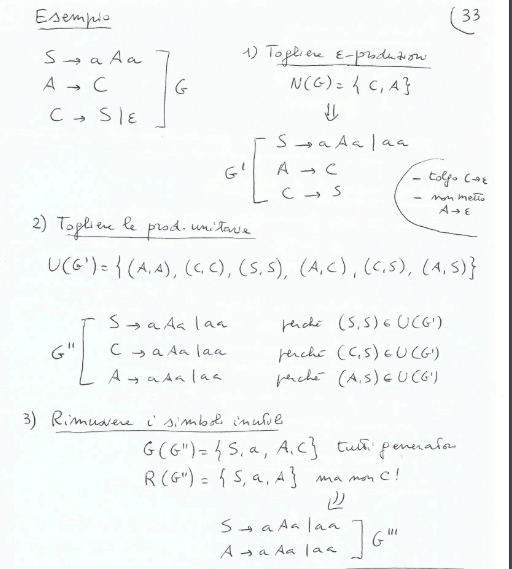 Esempio
(33
S → a A a
A → C
C → S | ε
] G
1) Togliere ε-produzioni
N(G) = { C, A }
⇓
G' [
S → a A a | a a
A → C
C → S
- tolgo C → ε
- non metto
A → ε
2) Togliere le prod. unitarie
U(G') = { (A, A), (C, C), (S, S), (A, C), (C, S), (A, S) }
G'' [
S → a A a | a a perché (S, S) ∈ U(G')
C → a A a | a a perché (C, S) ∈ U(G')
A → a A a | a a perché (A, S) ∈ U(G')
3) Rimuovere i simboli inutili
G(G'') = { S, a, A, C } tutti generatori
R(G'') = { S, a, A } ma non C!
⇓
S → a A a | a a
A → a A a | a a
] G'''